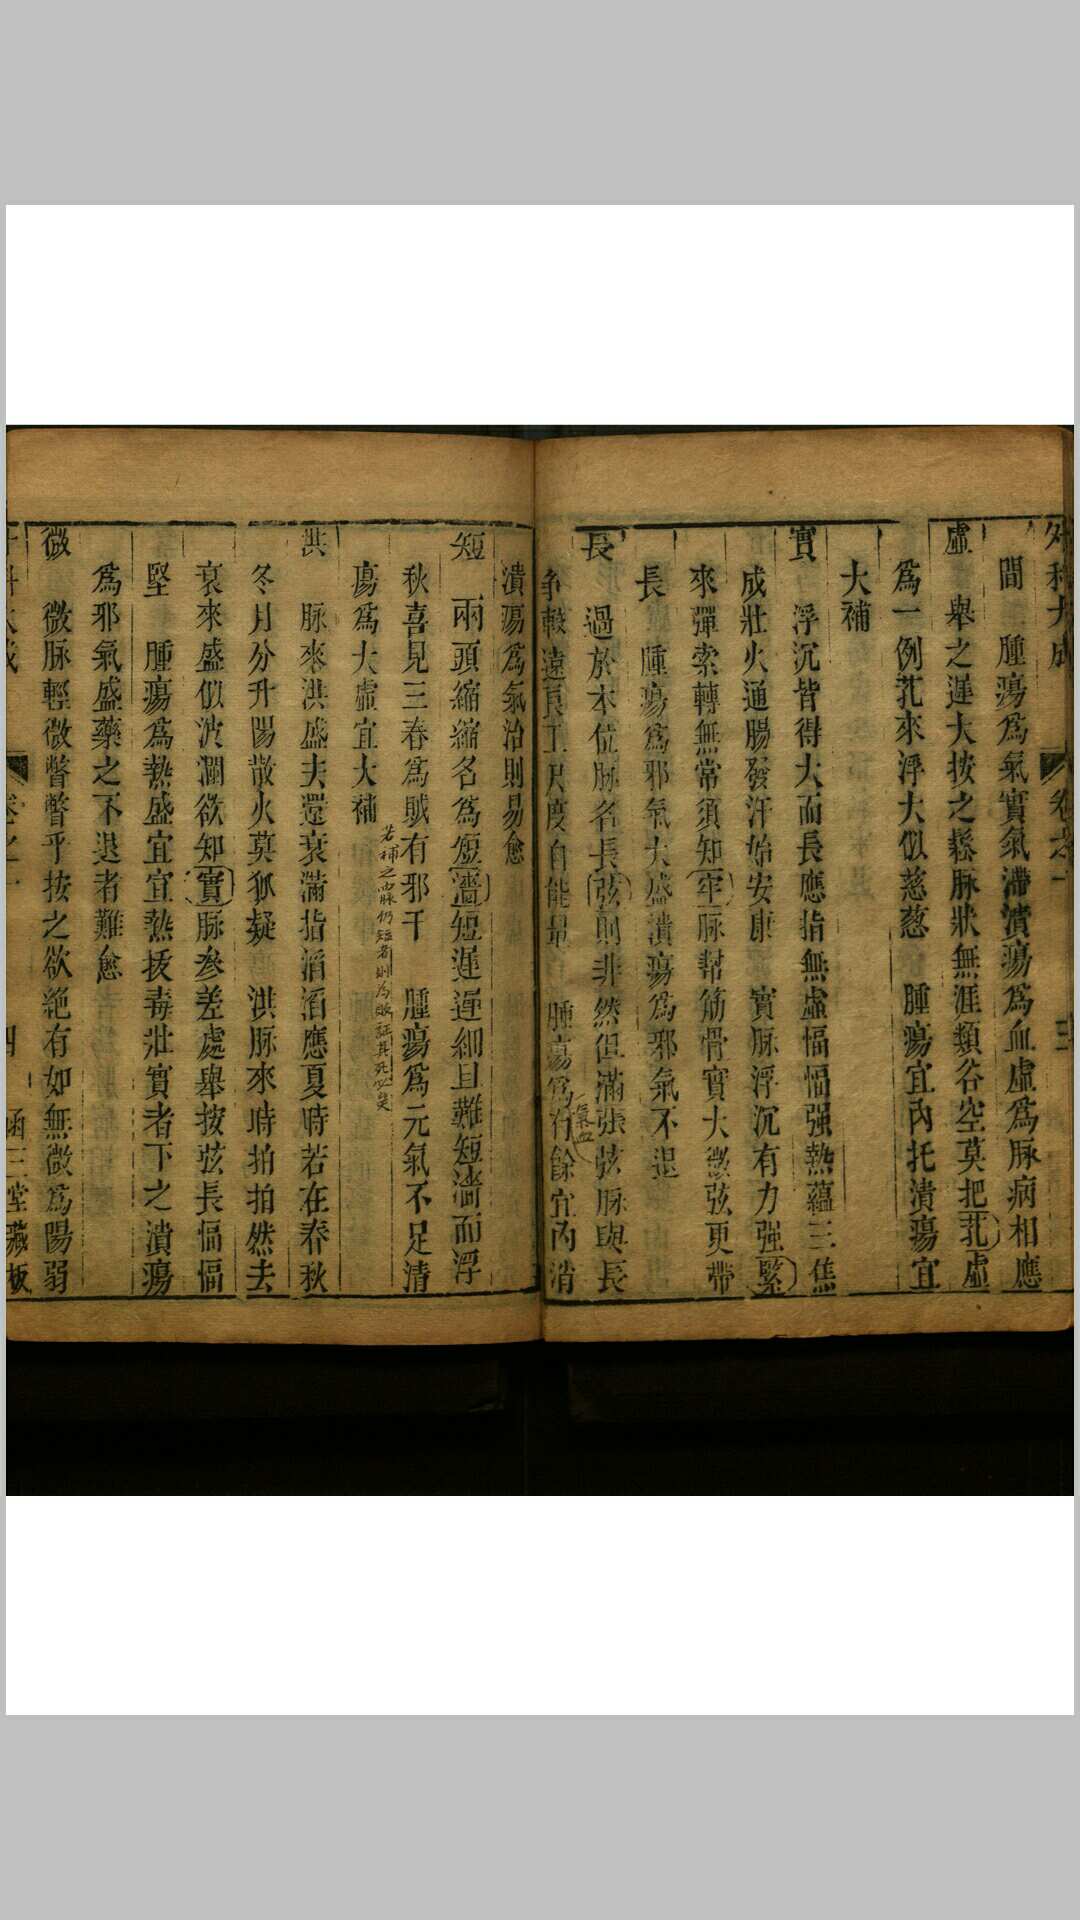 外科大成 卷之一 三
間 腫瘍爲氣實氣滯潰瘍爲血虛爲脉病相應
虛
舉之遲大按之鬆脉狀無涯類谷空莫把芤虛
爲一例芤來浮大似慈葱 腫瘍宜內托潰瘍宜
大補
實
浮沉皆得大而長應指無虛愊愊强熱蘊三焦
成壯火通腸發汗始安康 實脉浮沉有力强緊
來彈索轉無常須知牢脉幇筋骨實大微弦更帶
長 腫瘍爲邪氣大盛潰瘍爲邪氣不退
長
過於本位脉名長弦則非然但滿張弦脉與長
爭較遠良工尺度自能量 腫瘍爲有餘宜內消
氣血
潰瘍爲氣治則易愈
短
兩頭縮縮名爲短濇短遲遲細且難短濇而浮
秋喜見三春爲賊有邪干 腫瘍爲元氣不足潰
瘍爲大虛宜大補
若補之而脉仍短者則爲敗証其死必矣
洪
脉來洪盛去還衰滿指滔滔應夏時若在春秋
冬月分升陽散火莫狐疑 洪脉來時拍拍然去
衰來盛似波瀾欲知實脉參差處舉按弦長愊愊
堅 腫瘍爲熱盛宜宣熱拔毒壯實者下之潰瘍
爲邪氣盛藥之不退者難愈
微
微脉輕微瞥瞥乎按之欲絶有如無微爲陽弱
卷之一 四 函三堂藏板